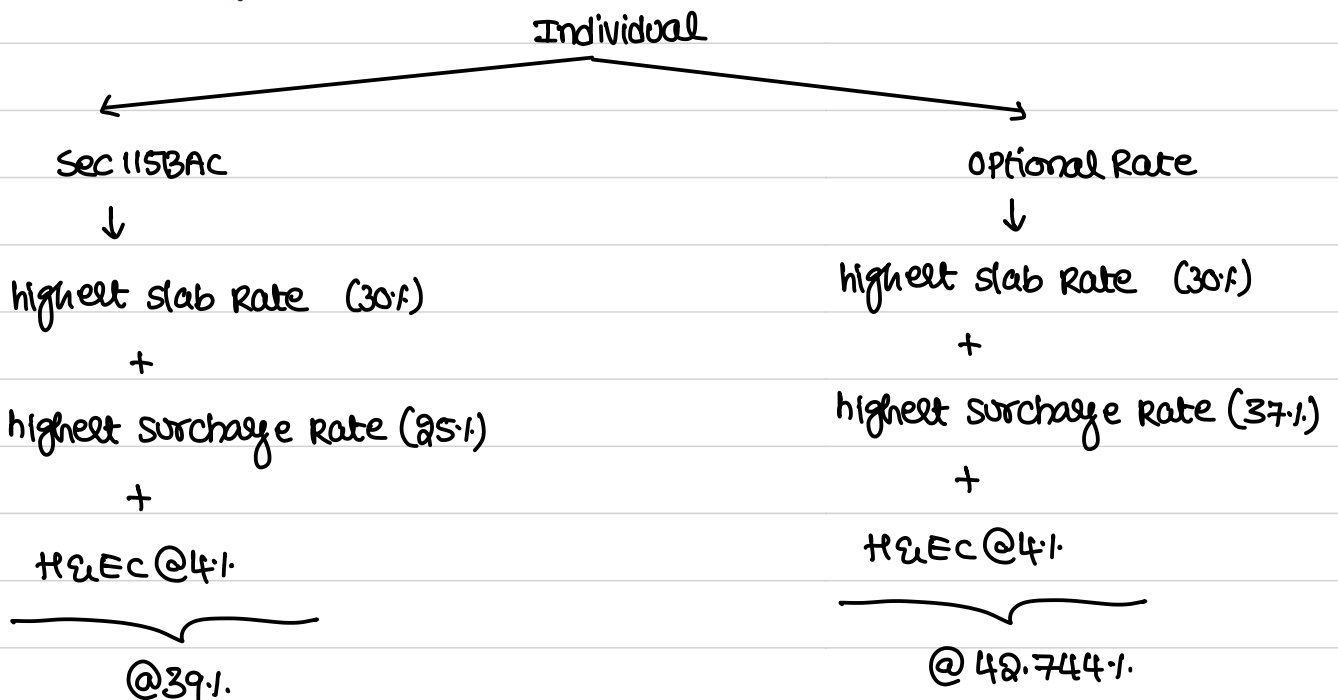 Individual
Sec 115BAC
↓
highest slab Rate (30%)
+
highest surcharge Rate (25%)
+
H&EC @4%
@39%
Optional Rate
↓
highest slab Rate (30%)
+
highest surcharge Rate (37%)
+
H&EC @4%
@42.744%